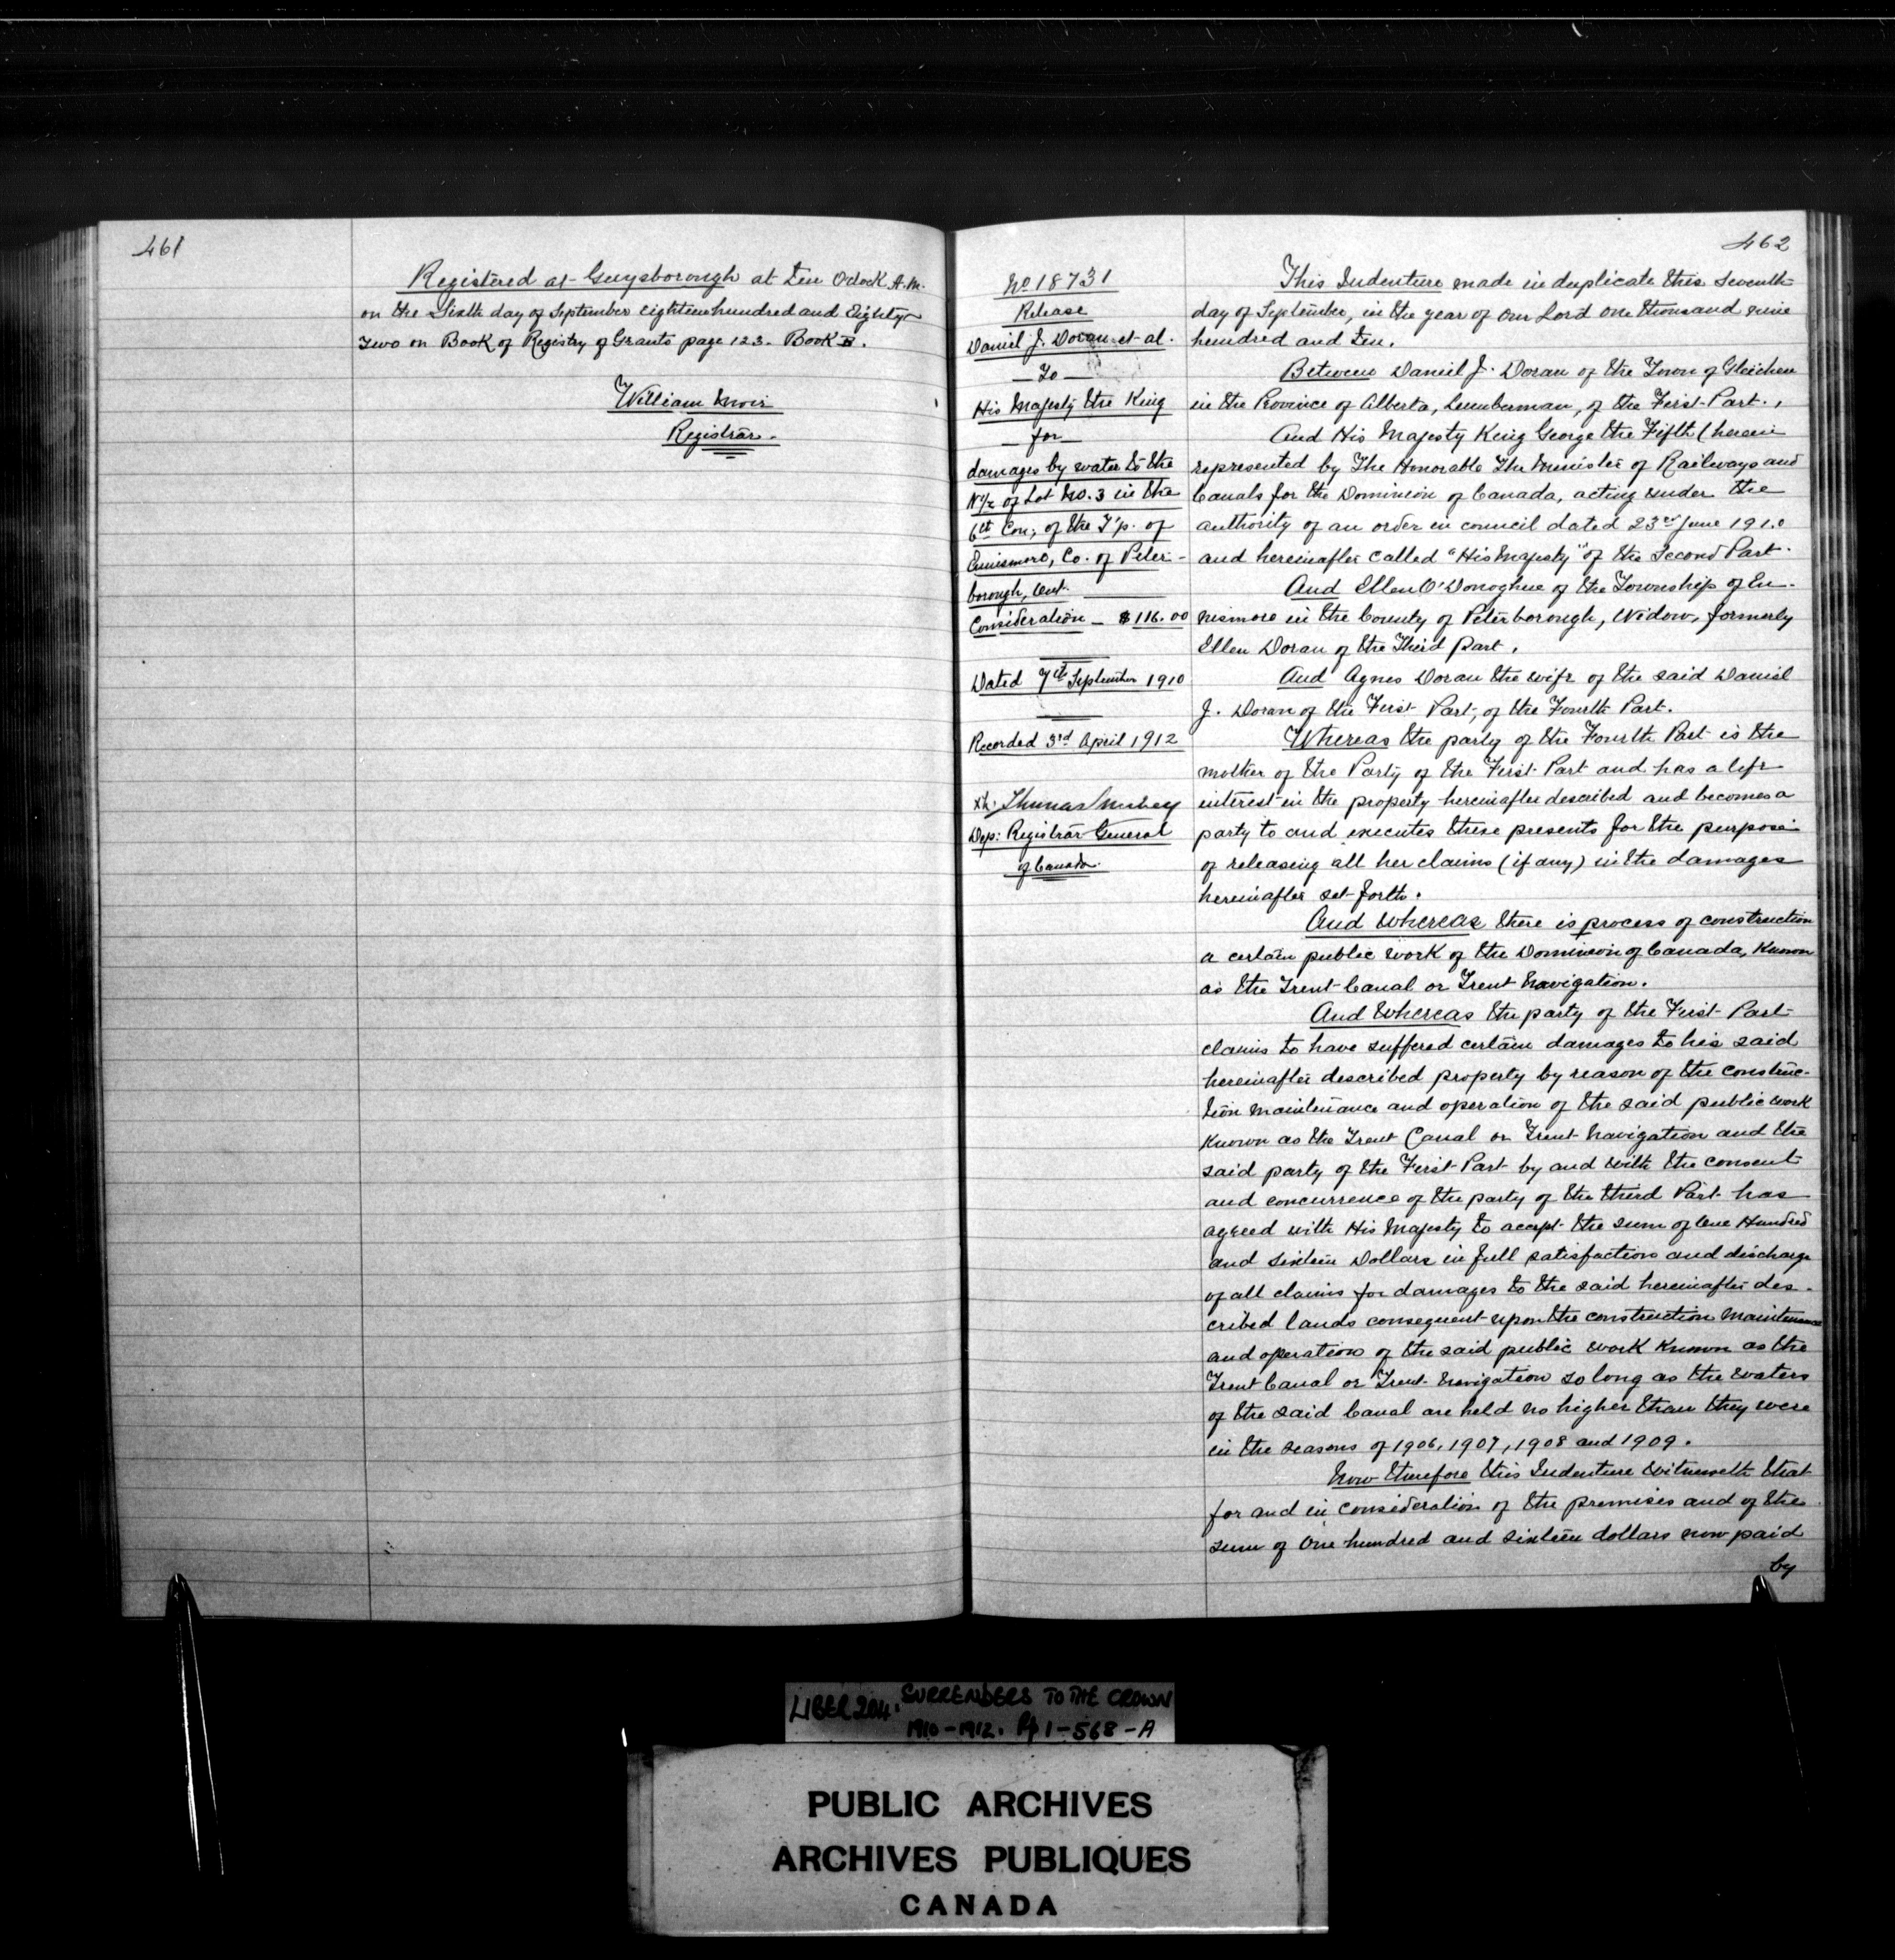 461
Registered at Guysborough at Ten O'clock A.M.
on the Sixth day of September eighteen hundred and Eighty
Two on Book of Registry of Grants page 123. Book
William Muir
Registrar.
462
No 18731
Release
Daniel J. Doran et al.
To
His Majesty the King
for
damages by water to the
N½ of Lot No. 3 in the
6th Con; of the T'p. of
Ennismore, Co. of Peter-
borough, Ont.
Consideration - $116.00
Dated 7th September 1910
Recorded 3rd April 1912
Dep: Registrar General
of Canada.
This Indenture made in duplicate this seventh
day of September, in the year of Our Lord one thousand nine
hundred and Ten.
Between Daniel J. Doran of the Town of Gleichen
in the Province of Alberta, Lumberman, of the First Part.,
And His Majesty King George the Fifth (herein
represented by The Honorable The Minister of Railways and
Canals for the Dominion of Canada, acting under the
authority of an order in council dated 23rd June 1910
and hereinafter called "His Majesty" of the Second Part.
And Ellen O'Donoghue of the Township of En-
nismore in the County of Peterborough, Widow, formerly
Ellen Doran of the Third Part.
And Agnes Doran the wife of the said Daniel
J. Doran of the First Part, of the Fourth Part.
Whereas the party of the Fourth Part is the
mother of the Party of the First Part and has a life
interest in the property hereinafter described and becomes a
party to and executes these presents for the purpose
of releasing all her claims (if any) in the damages
hereinafter set forth.
And whereas there is process of construction
a certain public work of the Dominion of Canada, Known
as the Trent Canal or Trent Navigation.
And Whereas the party of the First Part
claims to have suffered certain damages to his said
hereinafter described property by reason of the construc-
tion maintenance and operation of the said public work
Known as the Trent Canal or Trent Navigation and the
said party of the First Part by and with the consent
and concurrence of the party of the third Part has
agreed with His Majesty to accept the sum of One Hundred
and sixteen Dollars in full satisfaction and discharge
of all claims for damages to the said hereinafter des-
cribed lands consequent upon the construction maintenance
and operation of the said public work Known as the
Trent Canal or Trent Navigation so long as the waters
of the said Canal are held no higher than they were
in the seasons of 1906, 1907, 1908 and 1909.
Now therefore this Indenture witnesseth that
for and in consideration of the premises and of the
sum of One hundred and sixteen dollars now paid
by
LIBER 204. SURRENDERS TO THE CROWN
1910-1912. Pp 1-568-A
PUBLIC ARCHIVES
ARCHIVES PUBLIQUES
CANADA